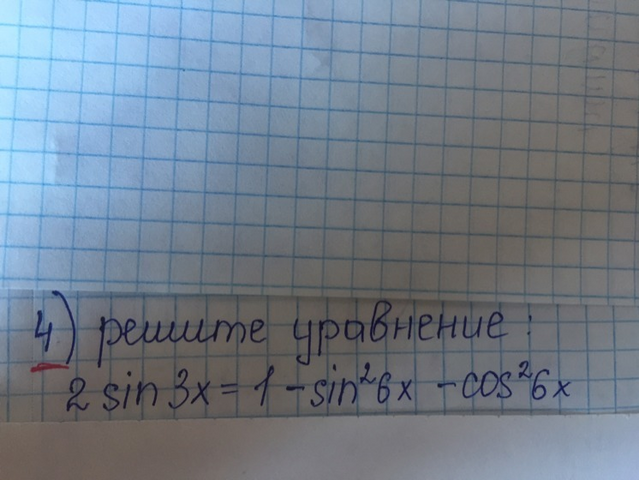 4) решите уравнение:
2 sin 3x = 1 - sin²6x - cos²6x